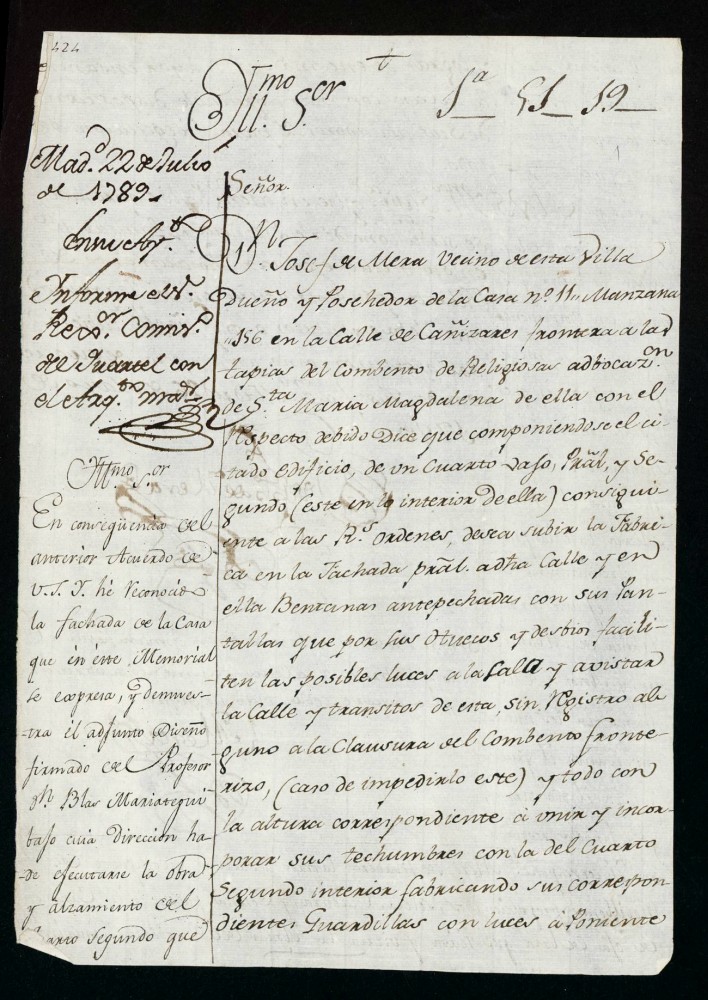 424
t
Yll.mo S.or
1a 51 19
Mad.d 22 de Julio
de 1789
En su Ay.to
Informe el S.r
Rex.or Comis.o
del Quartel con
el Arq.to m.or
Yll.mo S.or
En conseqüencia del
anterior Acuerdo de
V.S.Y. hé reconocido
la fachada de la Casa
que en este Memorial
se expresa, y demues-
tra el adjunto Diseño
firmado del Profesor
Dn. Blas Mariategui
bajo cuia direccion ha-
de ejecutarse la obra
y alzamiento del
quarto segundo que
Señor.
Dn. Josef de Mera vecino de esta Villa
Dueño y Poshedor de la Casa nº. 11 Manzana
156 en la Calle de Cañizares frontera a las
tapias del Combento de Religiosas advocaz.on
de S.ta Maria Magdalena de ella con el
respecto debido Dice que componiendose el ci-
tado edificio, de un Cuarto vajo, Pral, y Se-
gundo (este en lo interior de ella) consigui-
ente a las R.s ordenes, desea subir la Fabri-
ca en la Fachada pral. a dha Calle y en
ella Bentanas antepechadas con sus Pan-
tallas que por sus Huecos y desbios facili-
ten las posibles luces a la Sala y avistar
la Calle y transitos de esta, sin Registro al-
guno a la Clausura del Combento fronte-
rizo, (caso de impedirlo este) y todo con
la altura correspondiente á unir y incor-
porar sus techumbres con la del Cuarto
Segundo interior fabricando sus correspon-
dientes Guardillas con luces á Poniente